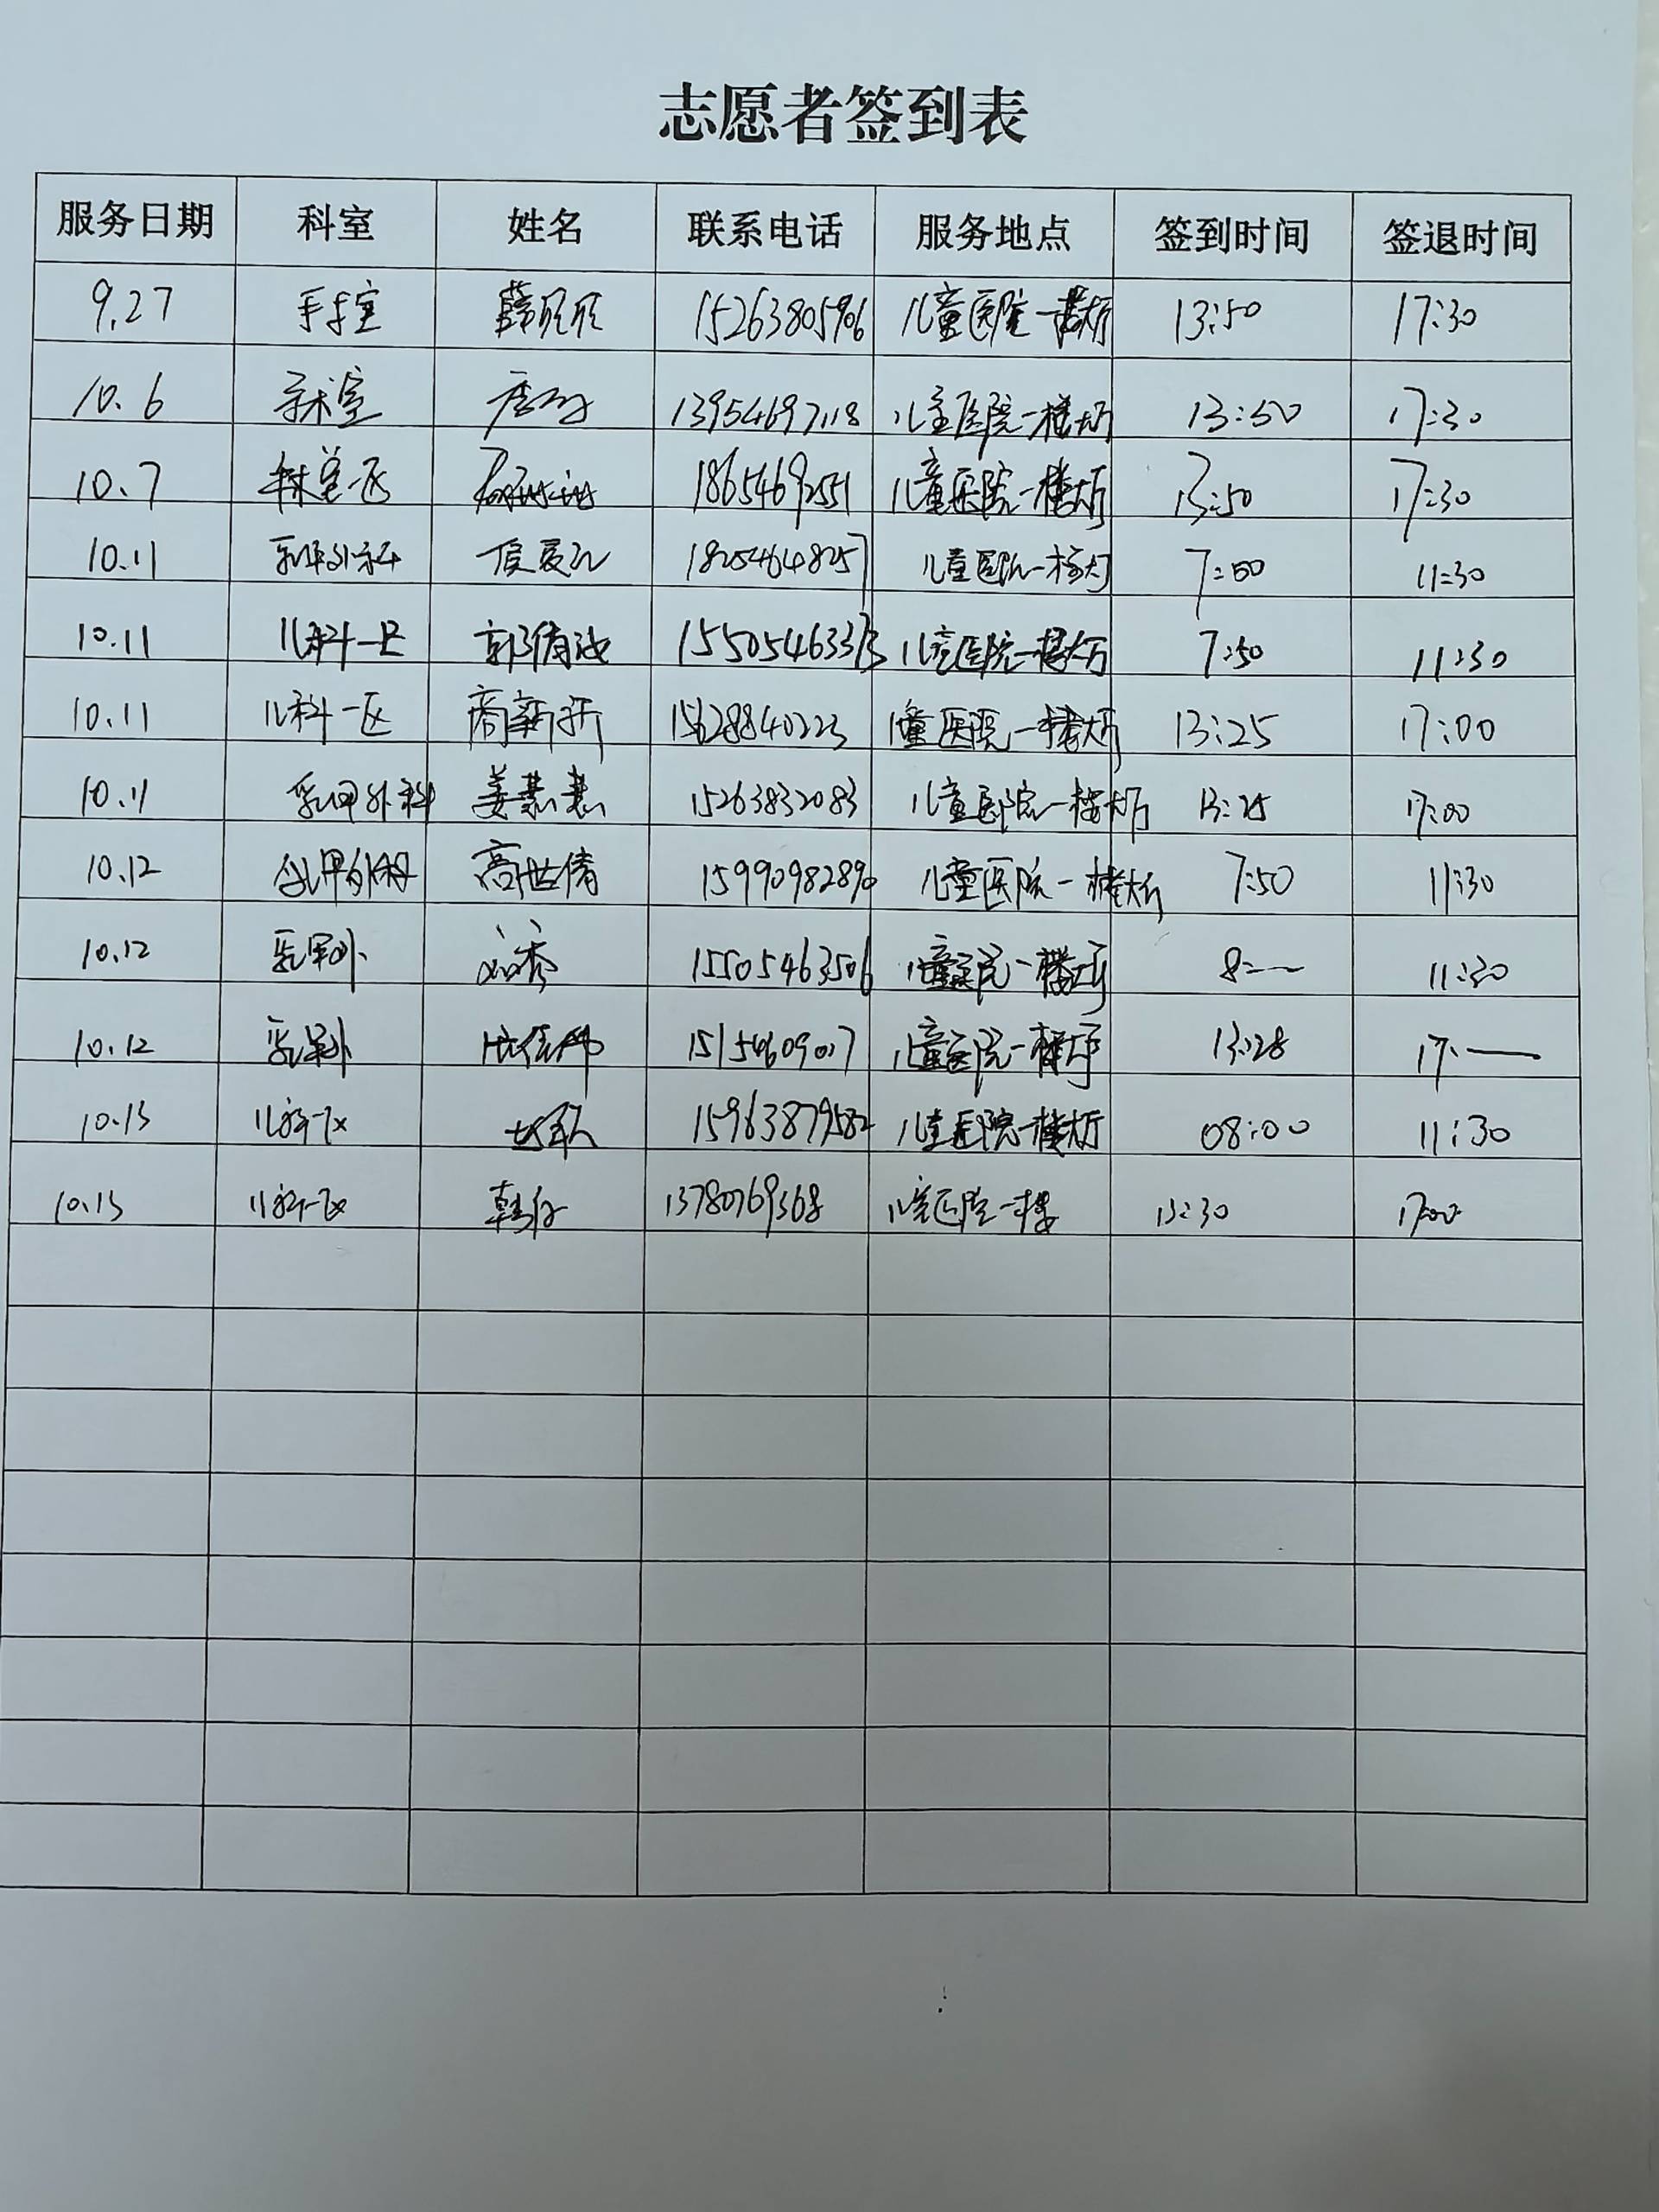 志愿者签到表
服务日期 科室 姓名 联系电话 服务地点 签到时间 签退时间
9.27 手术室 薛欣欣 15263805906 儿童医院一楼大厅 13:50 17:30
10.6 手术室 13954697118 儿童医院一楼大厅 13:50 17:30
10.7 18654692551 儿童医院一楼大厅 13:50 17:30
10.11 乳甲外科 侯爱礼 18254648257 儿童医院一楼大厅 7:50 11:30
10.11 儿科一区 郭倩 15505463373 儿童医院一楼大厅 7:50 11:30
10.11 儿科一区 商新新 15628840223 儿童医院一楼大厅 13:25 17:00
10.11 乳甲外科 姜慧慧 15263832083 儿童医院一楼大厅 13:25 17:00
10.12 乳甲外科 高世倩 15990982890 儿童医院一楼大厅 7:50 11:30
10.12 乳甲外 15505463506 儿童医院一楼大厅 8:— 11:30
10.12 乳甲外 儿童医院一楼大厅 13:28 17:—
10.13 儿科一区 15963879582 儿童医院一楼大厅 08:00 11:30
10.13 儿科一区 13780769368 儿童医院一楼 13:30 17:00